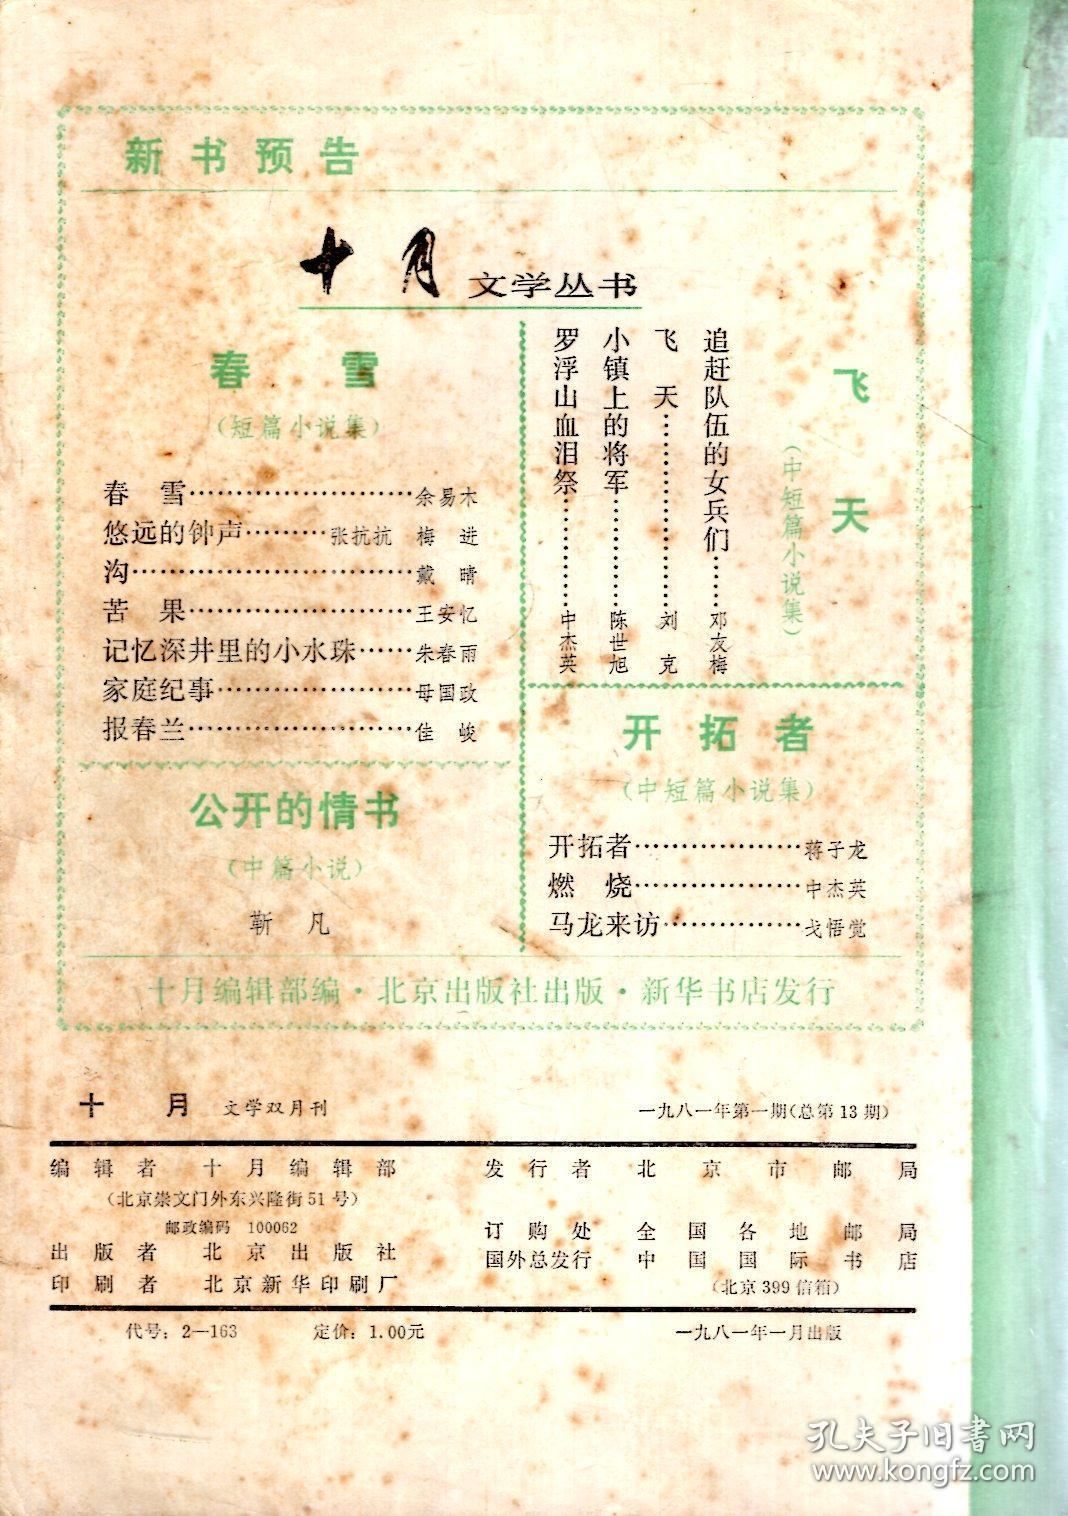 新书预告
十月 文学丛书
春雪
（短篇小说集）
春 雪……………………余易木
悠远的钟声………张抗抗 梅 进
沟…………………………戴 晴
苦 果……………………王安忆
记忆深井里的小水珠……朱春雨
家庭纪事…………………母国政
报春兰……………………佳 峻
飞天
（中短篇小说集）
追赶队伍的女兵们……邓友梅
飞 天…………………刘 克
小镇上的将军…………陈世旭
罗浮山血泪祭…………中杰英
公开的情书
（中篇小说）
靳 凡
开拓者
（中短篇小说集）
开拓者………………蒋子龙
燃 烧………………中杰英
马龙来访……………戈悟觉
十月编辑部编·北京出版社出版·新华书店发行
十 月 文学双月刊
一九八一年第一期（总第13期）
编辑者 十月编辑部
（北京崇文门外东兴隆街51号）
邮政编码 100062
出版者 北京出版社
印刷者 北京新华印刷厂
发行者 北京市邮局
订购处 全国各地邮局
国外总发行 中国国际书店
（北京399信箱）
代号：2—163 定价：1.00元 一九八一年一月出版
孔夫子旧书网
www.kongfz.com